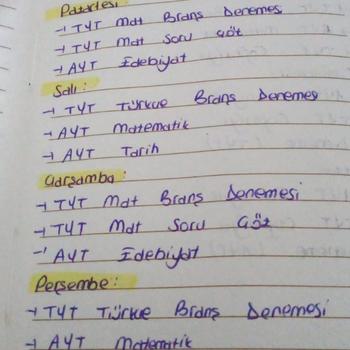 Pazartesi
→ TYT Mat Branş Denemesi
→ TYT Mat Soru Çöz
→ AYT Edebiyat
Salı:
→ TYT Türkçe Branş Denemesi
→ AYT Matematik
→ AYT Tarih
Çarşamba:
→ TYT Mat Branş Denemesi
→ TYT Mat Soru Çöz
→ AYT Edebiyat
Perşembe:
→ TYT Türkçe Branş Denemesi
→ AYT Matematik